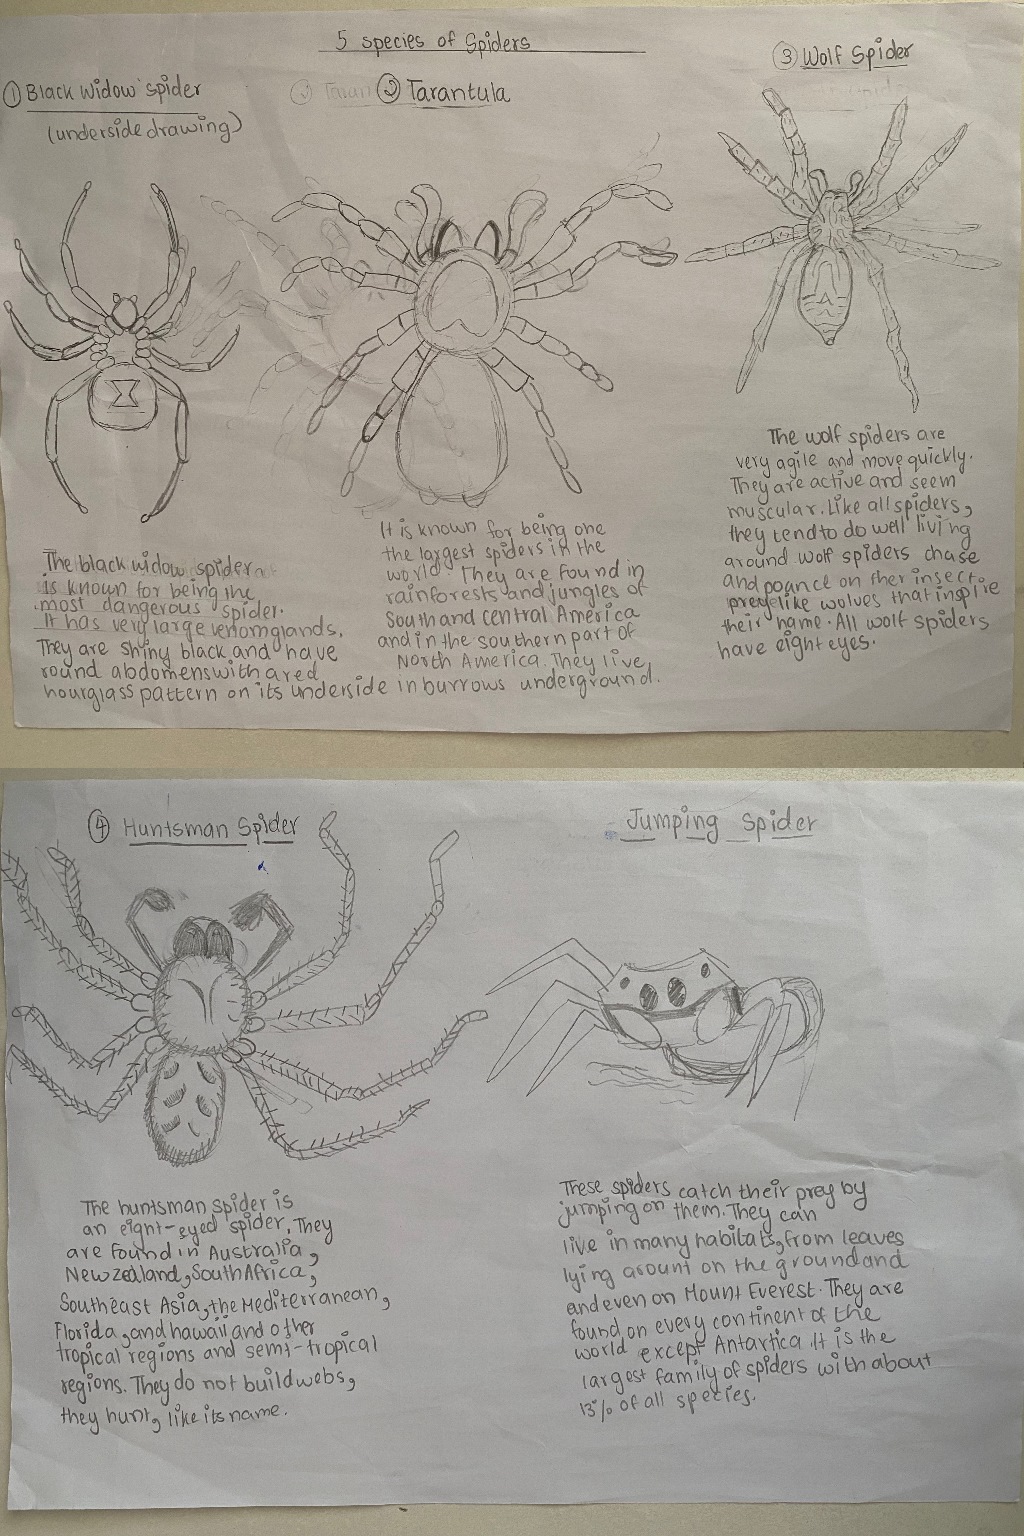 5 species of Spiders
① Black widow spider
(underside drawing)
② Tarantula
③ Wolf Spider
The black widow spider
is known for being the
most dangerous spider.
It has very large venomglands.
They are shiny black and have
round abdomens with a red
hourglass pattern on its underside
It is known for being one
the largest spiders in the
world. They are found in
rainforests and jungles of
South and central America
and in the southern part of
North America. They live,
in burrows underground.
The wolf spiders are
very agile and move quickly.
They are active and seem
muscular. Like all spiders,
they tend to do well living
around wolf spiders chase
and poance on ther insect
prey like wolves that inspire
their name. All wolf spiders
have eight eyes.
④ Huntsman Spider
The huntsman spider is
an eight-eyed spider, They
are found in Australia,
New zealand, South Africa,
Southeast Asia, the Mediterranean,
Florida, and hawaii and other
tropical regions and semi-tropical
regions. They do not build webs,
they hunt, like its name.
Jumping spider
These spiders catch their prey by
jumping on them. They can
live in many habitats, from leaves
lying arount on the ground and
and even on Mount Everest. They are
found on every continent of the
world except Antartica. It is the
largest family of spiders with about
13% of all species.